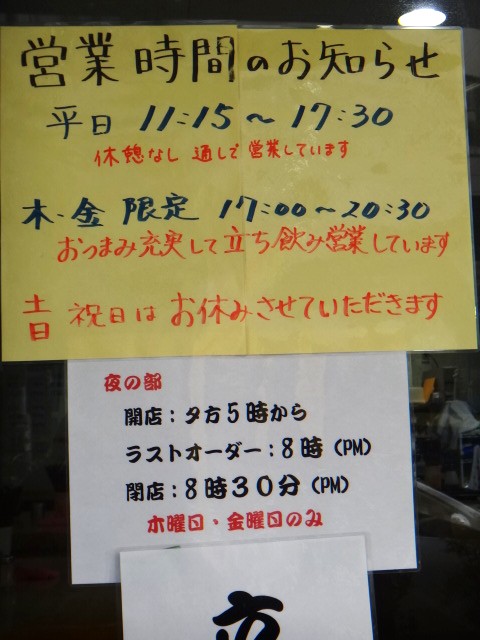 営業時間のお知らせ
平日 11:15～17:30
休憩なし 通しで営業しています
木・金 限定 17:00～20:30
おつまみ充実して立ち飲み営業しています
土日 祝日は お休みさせていただきます
夜の部
開店：夕方5時から
ラストオーダー：8時（PM）
閉店：8時30分（PM）
木曜日・金曜日のみ